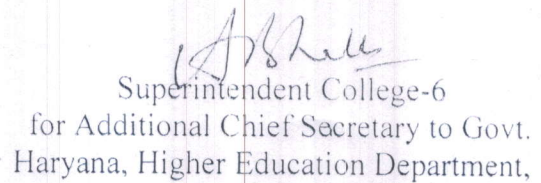 Superintendent College-6
for Additional Chief Secretary to Govt.
Haryana, Higher Education Department,